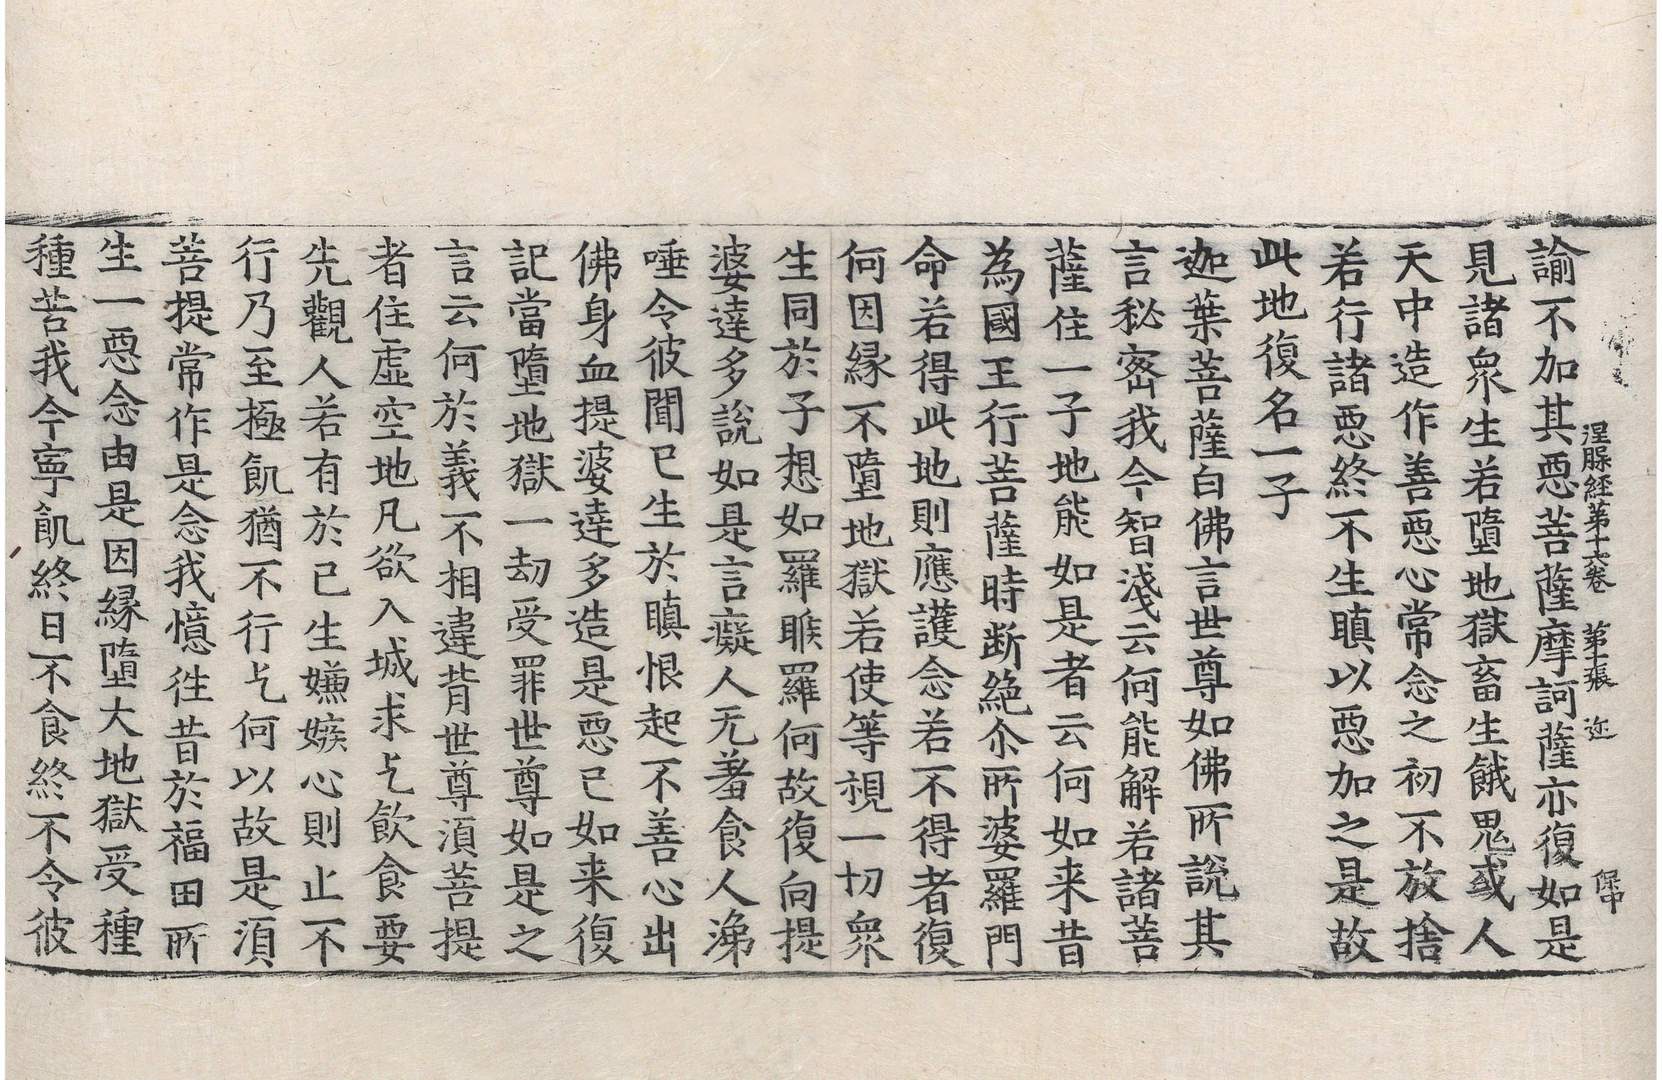 涅脲経第十六卷 第十張 迩 保中
諭不加其惡菩薩摩訶薩亦復如是
見諸衆生若墮地獄畜生餓鬼或人
天中造作善惡心常念之初不放捨
若行諸惡終不生瞋以惡加之是故
此地復名一子
迦葉菩薩白佛言世尊如佛所說其
言秘密我今智淺云何能解若諸菩
薩住一子地能如是者云何如来昔
為國王行菩薩時断絶尒所婆羅門
命若得此地則應護念若不得者復
何因緣不墮地獄若使等視一切衆
生同於子想如羅睺羅何故復向提
婆達多說如是言癡人无羞食人涕
唾令彼聞已生於瞋恨起不善心出
佛身血提婆達多造是惡已如来復
記當墮地獄一劫受罪世尊如是之
言云何於義不相違背世尊湏菩提
者住虛空地凡欲入城求乞飲食要
先觀人若有於己生嫌嫉心則止不
行乃至極飢猶不行乞何以故是湏
菩提常作是念我憶徃昔於福田所
生一惡念由是因緣墮大地獄受種
種苦我今寧飢終日不食終不令彼